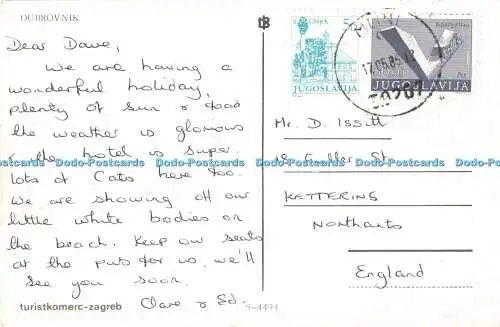 DUBROVNIK
Dear Dave,
We are having a
wonderful holiday,
plenty of sun & food
the weather is glorious
& the hotel is super.
lots of Cats here too.
We are showing off our
little white bodies on
the beach. Keep our seats
at the pub for us, we'll
see you soon.
Clare & Ed.
turistkomerc-zagreb
S-4494
Osijek
JUGOSLAVIJA
JUGOSLAVIJA
17.05.85
Mr. D. Issitt
St.
KETTERING
Northants
England
Dodo-Postcards Dodo-Postcards Dodo-Postcards Dodo-Postcards Dodo-Postcards